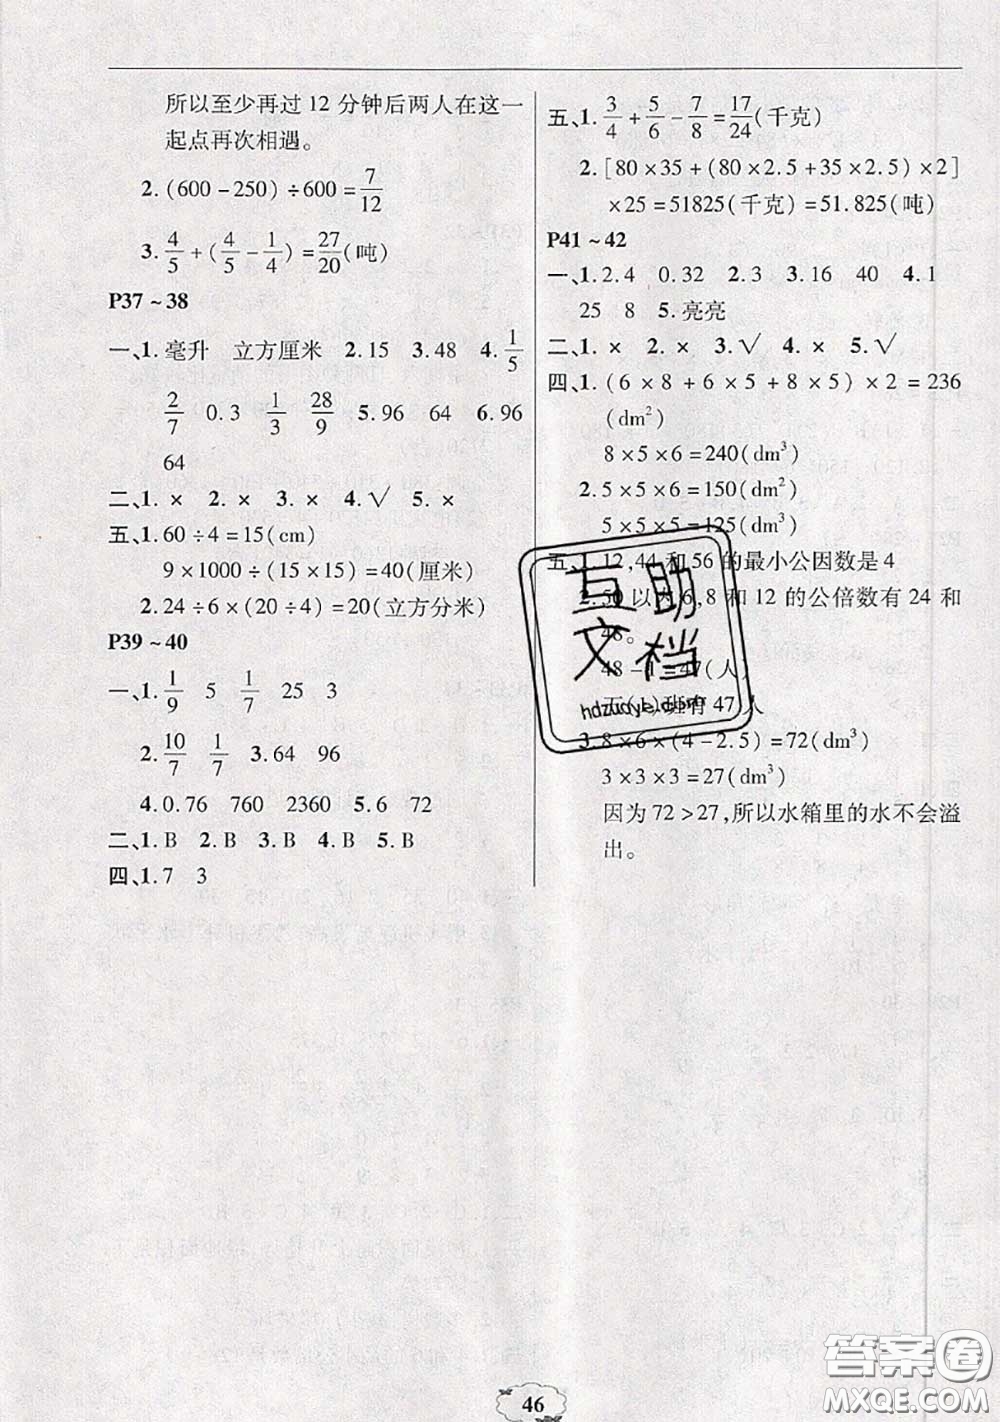 所以至少再过 12 分钟后两人在这一
起点再次相遇。
2. (600-250)÷600=7/12
3. 4/5+(4/5-1/4)=27/20(吨)
P37~38
一、1.毫升 立方厘米 2.15 3.48 4. 1/5
2/7 0.3 1/3 28/9 5.96 64 6.96
64
二、1. × 2. × 3. × 4.√ 5. ×
五、1.60÷4=15(cm)
9×1000÷(15×15)=40(厘米)
2.24÷6×(20÷4)=20(立方分米)
P39~40
一、1. 1/9 5 1/7 25 3
2. 10/7 1/7 3.64 96
4.0.76 760 2360 5.6 72
二、1.B 2.B 3.B 4.B 5.B
四、1.7 3
五、1. 3/4+5/6-7/8=17/24(千克)
2.[80×35+(80×2.5+35×2.5)×2]
×25=51825(千克)=51.825(吨)
P41~42
一、1.2.4 0.32 2.3 3.16 40 4.1
25 8 5.亮亮
二、1. × 2. × 3.√ 4. × 5.√
四、1.(6×8+6×5+8×5)×2=236
(dm²)
8×5×6=240(dm³)
2.5×5×6=150(dm²)
5×5×5=125(dm³)
五、1.12,44 和 56 的最小公因数是 4
2.50 以内 6,8 和 12 的公倍数有 24 和
48。
48-1=47(人)
班有 47 人
3.8×6×(4-2.5)=72(dm³)
3×3×3=27(dm³)
因为 72>27,所以水箱里的水不会溢
出。
互助
文档
hdzuoye.com
46
答案圈
MXQE.COM